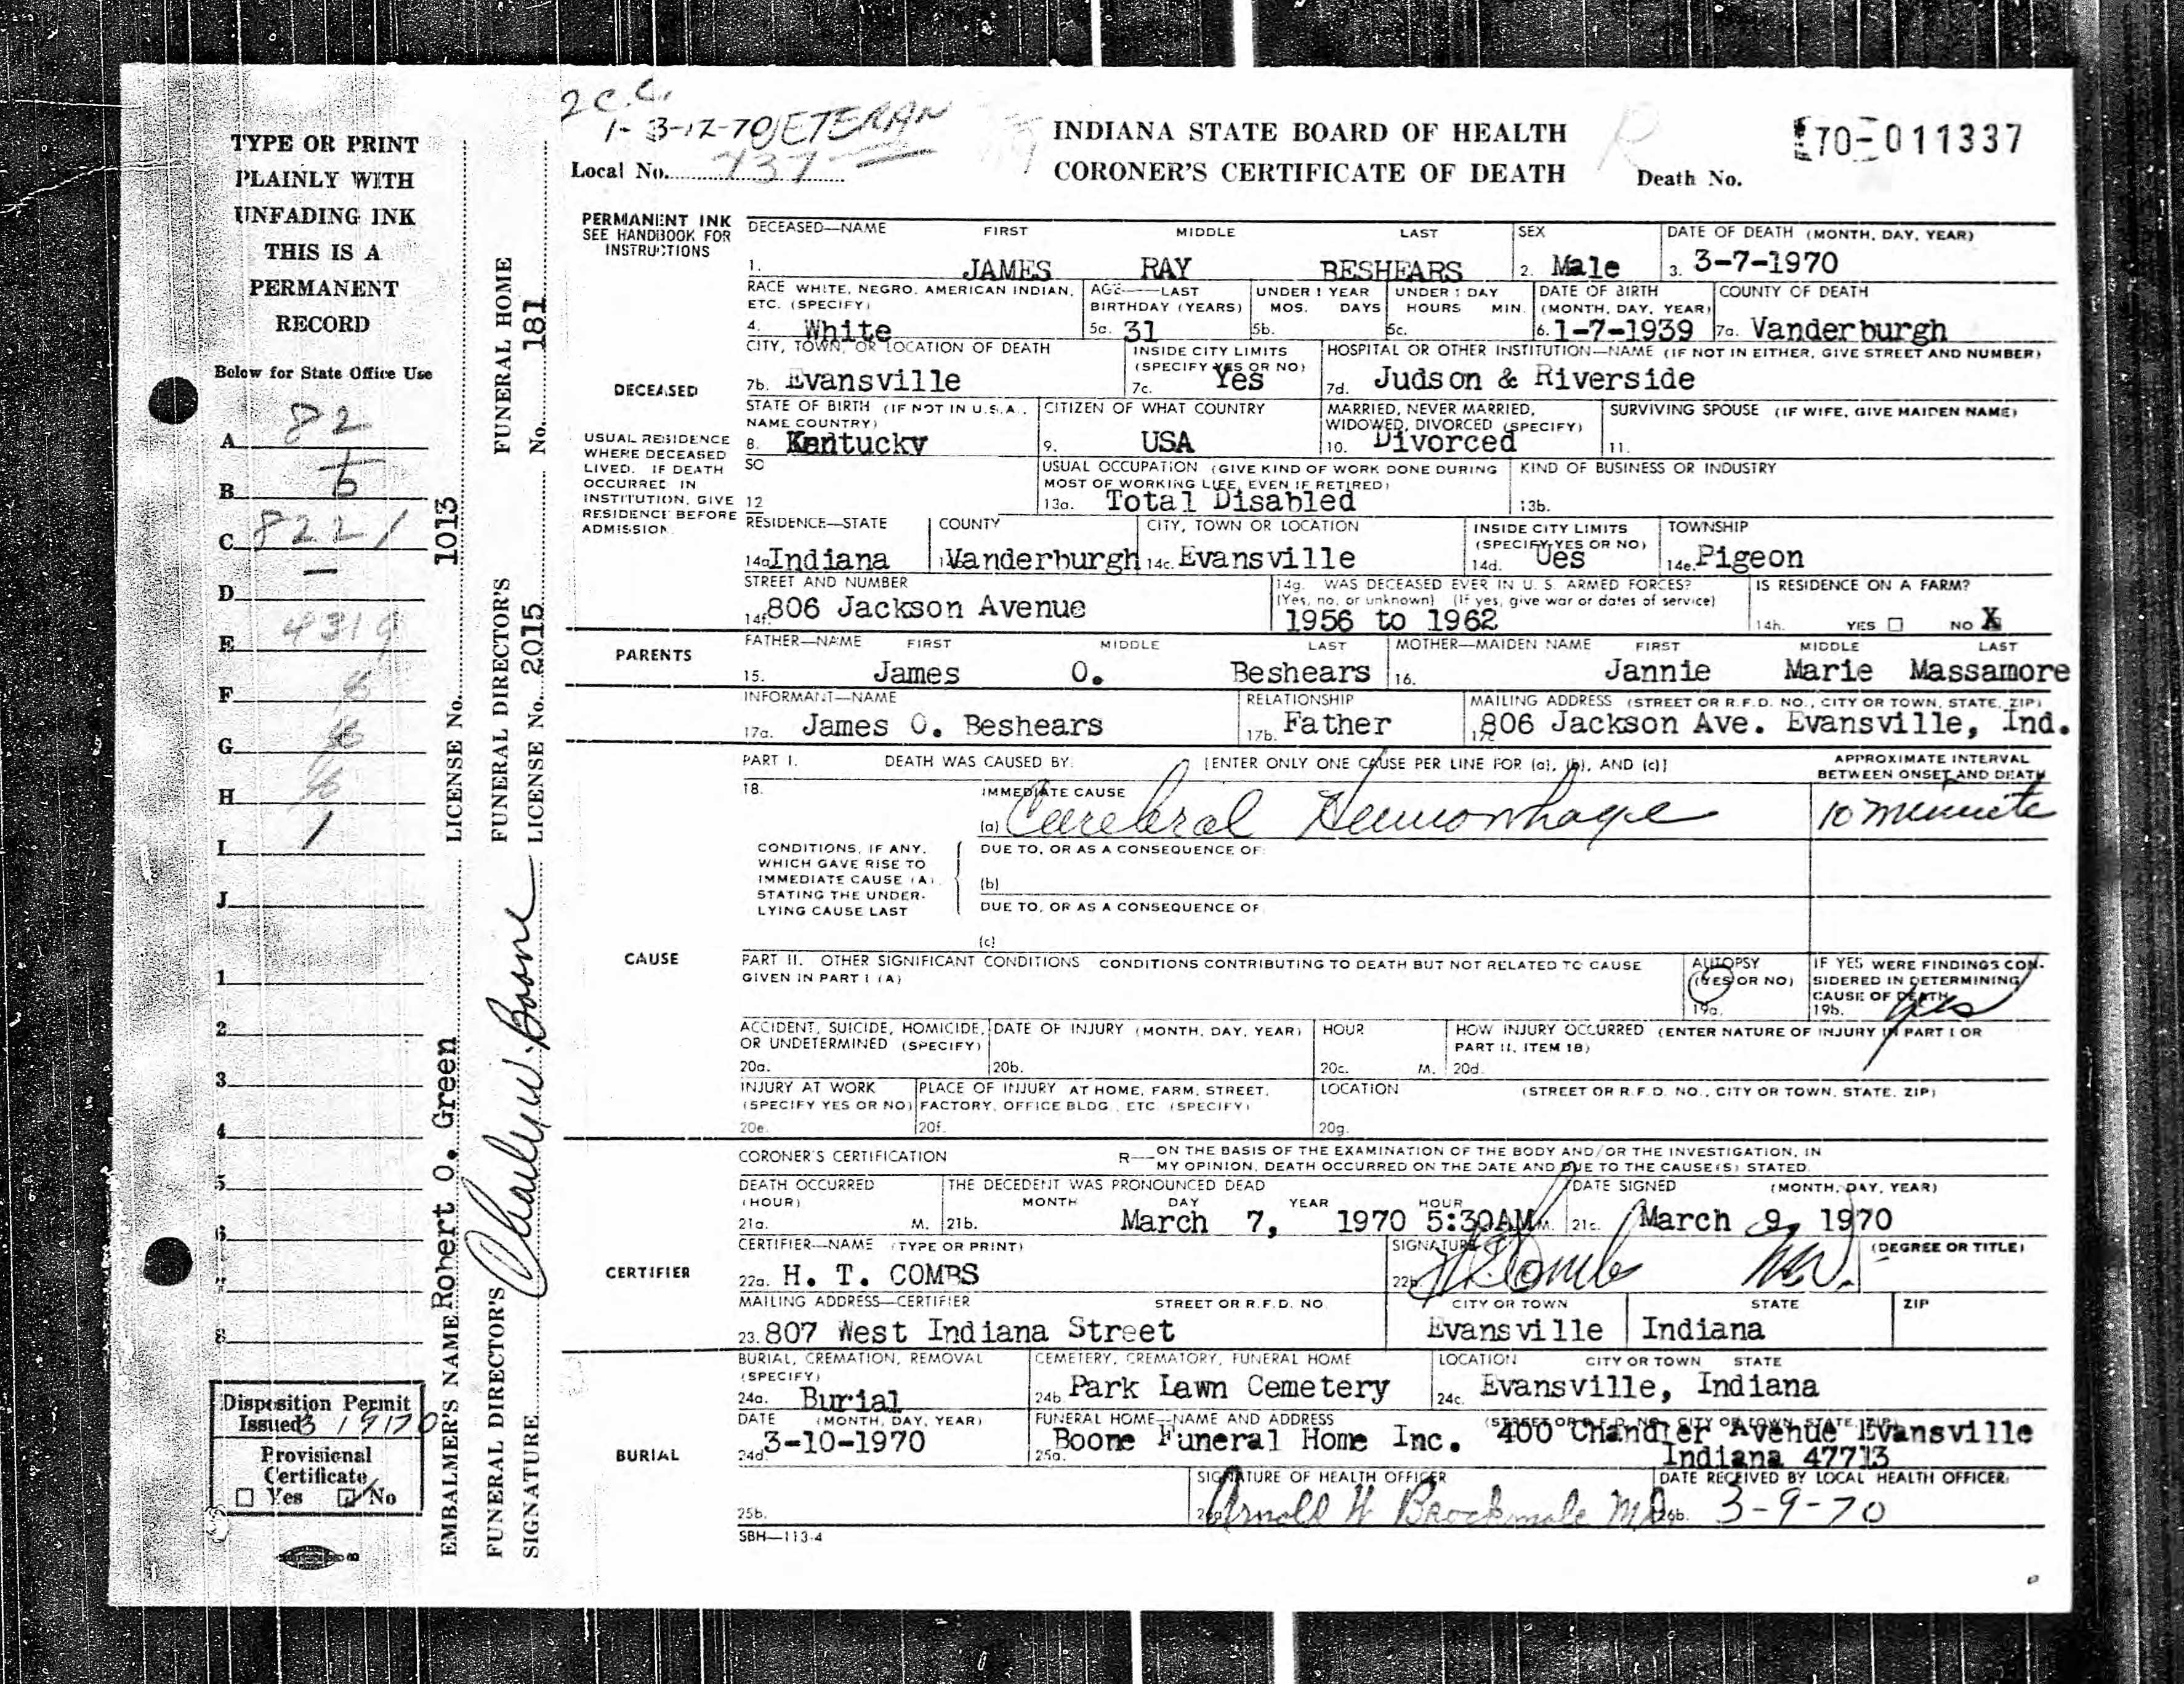 TYPE OR PRINT
PLAINLY WITH
UNFADING INK
THIS IS A
PERMANENT
RECORD
Below for State Office Use
A 82
B
C 8221
D —
E 4319
F
G
H
I 1
J
1
2
3
4
5
6
7
8
Disposition Permit
Issued 3 9 170
Provisional
Certificate
Yes No
EMBALMER'S NAME Robert O. Green LICENSE No. 1013
FUNERAL DIRECTOR'S FUNERAL DIRECTOR'S FUNERAL HOME
SIGNATURE Charles W. Boone LICENSE No. 2015 No. 181
2 C.C.
1- 3-12-70 VETERAN
Local No. 737
INDIANA STATE BOARD OF HEALTH
CORONER'S CERTIFICATE OF DEATH
R
Death No.
70-011337
PERMANENT INK
SEE HANDBOOK FOR
INSTRUCTIONS
DECEASED
USUAL RESIDENCE
WHERE DECEASED
LIVED. IF DEATH
OCCURRED IN
INSTITUTION, GIVE
RESIDENCE BEFORE
ADMISSION
DECEASED—NAME FIRST MIDDLE LAST SEX DATE OF DEATH (MONTH, DAY, YEAR)
1. JAMES RAY BESHEARS 2. Male 3. 3-7-1970
RACE WHITE, NEGRO, AMERICAN INDIAN, AGE—LAST UNDER 1 YEAR UNDER 1 DAY DATE OF BIRTH COUNTY OF DEATH
ETC. (SPECIFY) BIRTHDAY (YEARS) MOS. DAYS HOURS MIN. (MONTH, DAY, YEAR)
4. White 5a. 31 5b. 5c. 6. 1-7-1939 7a. Vanderburgh
CITY, TOWN, OR LOCATION OF DEATH INSIDE CITY LIMITS HOSPITAL OR OTHER INSTITUTION—NAME (IF NOT IN EITHER, GIVE STREET AND NUMBER)
(SPECIFY YES OR NO)
7b. Evansville 7c. Yes 7d. Judson & Riverside
STATE OF BIRTH (IF NOT IN U.S.A., CITIZEN OF WHAT COUNTRY MARRIED, NEVER MARRIED, SURVIVING SPOUSE (IF WIFE, GIVE MAIDEN NAME)
NAME COUNTRY) WIDOWED, DIVORCED (SPECIFY)
8. Kentucky 9. USA 10. Divorced 11.
SO USUAL OCCUPATION (GIVE KIND OF WORK DONE DURING KIND OF BUSINESS OR INDUSTRY
MOST OF WORKING LIFE, EVEN IF RETIRED)
12 13a. Total Disabled 13b.
RESIDENCE—STATE COUNTY CITY, TOWN OR LOCATION INSIDE CITY LIMITS TOWNSHIP
(SPECIFY YES OR NO)
14a Indiana Vanderburgh 14c. Evansville 14d. Ues 14e. Pigeon
STREET AND NUMBER 14g. WAS DECEASED EVER IN U. S. ARMED FORCES? IS RESIDENCE ON A FARM?
(Yes, no, or unknown) (If yes, give war or dates of service)
14f. 806 Jackson Avenue 1956 to 1962 14h. YES NO X
PARENTS
FATHER—NAME FIRST MIDDLE LAST MOTHER—MAIDEN NAME FIRST MIDDLE LAST
15. James O. Beshears 16. Jannie Marie Massamore
INFORMANT—NAME RELATIONSHIP MAILING ADDRESS (STREET OR R.F.D. NO., CITY OR TOWN, STATE, ZIP)
17a. James O. Beshears 17b. Father 17c 806 Jackson Ave. Evansville, Ind.
PART I. DEATH WAS CAUSED BY: [ENTER ONLY ONE CAUSE PER LINE FOR (a), (b), AND (c)] APPROXIMATE INTERVAL
BETWEEN ONSET AND DEATH
18. IMMEDIATE CAUSE
(a) Cerebral Hemorrhage 10 minute
CONDITIONS, IF ANY,
WHICH GAVE RISE TO
IMMEDIATE CAUSE (A),
STATING THE UNDER-
LYING CAUSE LAST
DUE TO, OR AS A CONSEQUENCE OF:
(b)
DUE TO, OR AS A CONSEQUENCE OF
(c)
CAUSE
PART II. OTHER SIGNIFICANT CONDITIONS CONDITIONS CONTRIBUTING TO DEATH BUT NOT RELATED TO CAUSE
GIVEN IN PART I (A)
AUTOPSY
(YES OR NO)
19a.
IF YES WERE FINDINGS CON-
SIDERED IN DETERMINING
CAUSE OF DEATH
19b. yes
ACCIDENT, SUICIDE, HOMICIDE, DATE OF INJURY (MONTH, DAY, YEAR) HOUR HOW INJURY OCCURRED (ENTER NATURE OF INJURY IN PART I OR
OR UNDETERMINED (SPECIFY) PART II, ITEM 18)
20a. 20b. 20c. M. 20d.
INJURY AT WORK PLACE OF INJURY AT HOME, FARM, STREET, LOCATION (STREET OR R.F.D. NO., CITY OR TOWN, STATE, ZIP)
(SPECIFY YES OR NO) FACTORY, OFFICE BLDG., ETC (SPECIFY)
20e. 20f. 20g.
CORONER'S CERTIFICATION R— ON THE BASIS OF THE EXAMINATION OF THE BODY AND/OR THE INVESTIGATION, IN
MY OPINION, DEATH OCCURRED ON THE DATE AND DUE TO THE CAUSE(S) STATED.
DEATH OCCURRED THE DECEDENT WAS PRONOUNCED DEAD DATE SIGNED (MONTH, DAY, YEAR)
(HOUR) MONTH DAY YEAR HOUR
21a. M. 21b. March 7, 1970 5:30AM M. 21c. March 9, 1970
CERTIFIER
CERTIFIER—NAME (TYPE OR PRINT) SIGNATURE (DEGREE OR TITLE)
22a. H. T. COMBS 22b. H T Combs MD.
MAILING ADDRESS—CERTIFIER STREET OR R.F.D. NO. CITY OR TOWN STATE ZIP
23. 807 West Indiana Street Evansville Indiana
BURIAL
BURIAL, CREMATION, REMOVAL CEMETERY, CREMATORY, FUNERAL HOME LOCATION CITY OR TOWN STATE
(SPECIFY)
24a. Burial 24b. Park Lawn Cemetery 24c. Evansville, Indiana
DATE (MONTH, DAY, YEAR) FUNERAL HOME—NAME AND ADDRESS (STREET OR R.F.D. NO., CITY OR TOWN, STATE, ZIP)
24d. 3-10-1970 25a. Boone Funeral Home Inc. 400 Chandler Avenue Evansville
Indiana 47713
SIGNATURE OF HEALTH OFFICER DATE RECEIVED BY LOCAL HEALTH OFFICER
25b. 26a Arnold W Brockmole MD 26b. 3-9-70
SBH—113-4